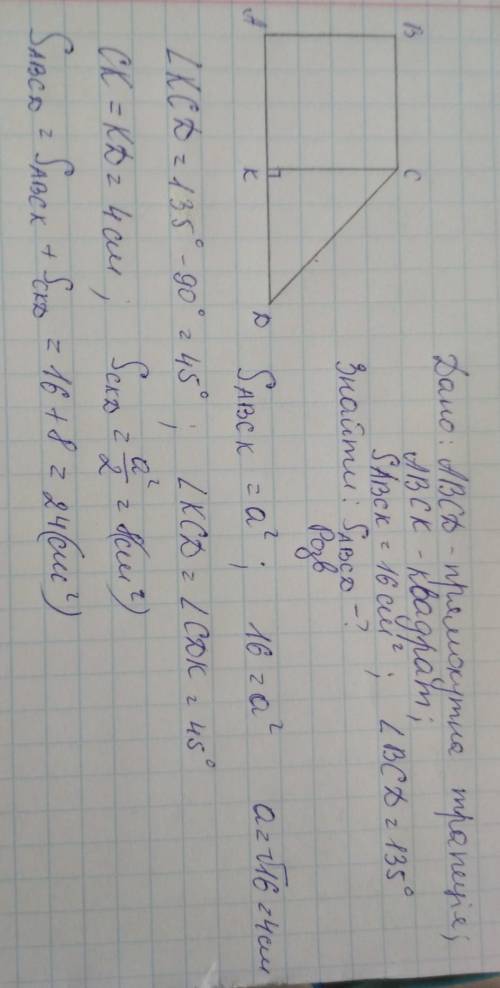 B
C
A
K
D
Дано: ABCD - прямокутна трапеція;
ABCK - квадрат;
SABCK = 16 см²; ∠BCD = 135°
Знайти: SABCD - ?
Розв
SABCK = a²; 16 = a² a = √16 = 4 см
∠KCD = 135° - 90° = 45°; ∠KCD = ∠CDK = 45°
CK = KD = 4 см; SCKD = a²/2 = 8 (см²)
SABCD = SABCK + SCKD = 16 + 8 = 24 (см²)